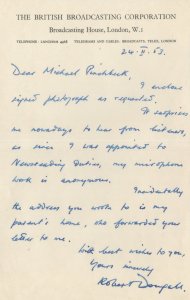 THE BRITISH BROADCASTING CORPORATION
Broadcasting House, London, W.1
TELEPHONE: LANGHAM 4468 TELEGRAMS AND CABLES: BROADCASTS, TELEX, LONDON
24. II 53.
Dear Michael Pinchbeck,
I enclose
signed photograph as requested.
It surprises
me nowadays to hear from listeners,
as since I was appointed to
Newsreading duties, my microphone
work is anonymous.
Incidentally
the address you wrote to is my
parent's home, who forwarded your
letter to me.
With best wishes to you,
Yours sincerely
Robert Dougall.